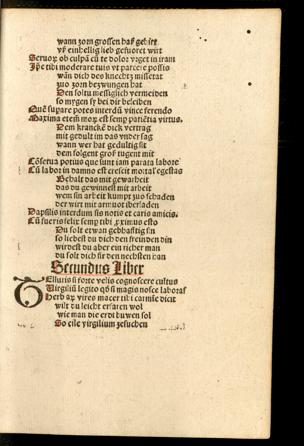 wann zorn grossen haß gebirt
vñ einhellig lieb gefuort wirt
Seruoꝝ ob culpã cũ te dolor vrget in iram
Ip̃e tibi moderare tuis vt parcere possis
wãn dich des knechtz missetat
zuo zorn bezwungen hat
Den soltu messiglich vermeiden
so mygen sy bei dir beleiben
Quẽ supare potes interdũ vince ferendo
Maxima etem̃ moꝝ est semp patiẽtia virtus.
Dem krancken dick vertrag
mit gedult im das vnder sag
wann wer hat gedultig sit
dem folgent groß tugent mit
Cõserua potius que sunt iam parata labore
Cũ labor in damno est crescit mortal egestas
Behalt das mit gewarheit
das du gewinnest mit arbeit
wem sin arbeit kumpt zuo schaden
der wirt mit armuot überladen
Dapsilis interdum sis notis et caris amicis.
Cũ fueris felix semp tibi ꝓximus esto
Du solt etwan gebhafftig sin
so liebest du dich den freinden din
wirdest du aber ein richer man
du solt dich für den nechsten han
Secundus Liber
Telluris si forte velis cognoscere cultus
Virgiliũ legito qð si magis nosce laboras
Herbaꝝ vires macer tibi carmĩe dicit
wilt du leicht erfaren wol
wie man die erd buwen sol
So eile virgilium zesuchen